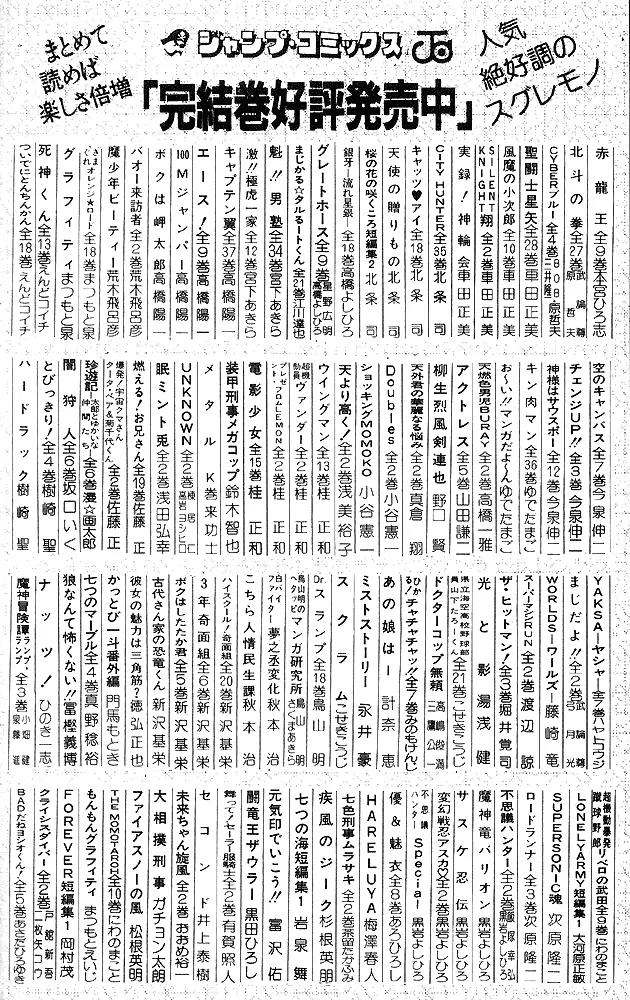 まとめて
読めば
楽しさ倍増
ジャンプ・コミックス
人気
絶好調の
スグレモノ
「完結巻好評発売中」
赤龍王全9巻本宮ひろ志
北斗の拳全27巻武論尊 原哲夫
CYBERブルー全4巻BOB 三井隆一 原哲夫
聖闘士星矢全28巻車田正美
風魔の小次郎全10巻車田正美
SILENT KNIGHT翔全2巻車田正美
実録!神輪会車田正美
CITY HUNTER全35巻北条司
キャッツ♥アイ全18巻北条司
天使の贈りもの北条司
桜の花の咲くころ短編集2北条司
銀牙―流れ星銀―全18巻高橋よしひろ
グレートホース全9巻星野広明 高橋よしひろ
まじかる☆タルるートくん全21巻江川達也
魁!!男塾全34巻宮下あきら
激!!極虎一家全12巻宮下あきら
キャプテン翼全37巻高橋陽一
エース!全9巻高橋陽一
100Mジャンパー高橋陽一
ボクは岬太郎高橋陽一
バオー来訪者全2巻荒木飛呂彦
魔少年ビーティー荒木飛呂彦
きまぐれオレンジ★ロード全18巻まつもと泉
グラフィティまつもと泉
死神くん全13巻えんどコイチ
ついでにとんちんかん全18巻えんどコイチ
空のキャンバス全7巻今泉伸二
チェンジUP!!全3巻今泉伸二
神様はサウスポー全12巻今泉伸二
キン肉マン全36巻ゆでたまご
お〜い!!マンガだよ〜んゆでたまご
天燃色男児BURAY全2巻高橋一雅
アクトレス全5巻山田謙二
柳生烈風剣連也野口賢
天外君の華麗なる悩み全2巻真倉翔
Doubles全2巻小谷憲一
ショッキングMOMOKO小谷憲一
天より高く!全2巻浅美裕子
ウイングマン全13巻桂正和
超機動員ヴァンダー全2巻桂正和
プレゼント・フロムLEMON全2巻桂正和
電影少女全15巻桂正和
装甲刑事メガコップ鈴木智也
メタルK巻来功士
UNKNOWN全2巻榛居仁 高岩ヨシヒロ
眠兎全2巻浅田弘幸
燃える!お兄さん全19巻佐藤正
爆発!宇宙クマさん クータ・ベア&菊千代くん全2巻佐藤正
珍遊記―太郎とゆかいな仲間たち―全6巻漫☆画太郎
闇狩人全6巻坂口いく
とびっきり!全4巻樹崎聖
ハードラック樹崎聖
YAKSA―ヤシャ―全7巻ハヤトコウジ
まじだよ!!全2巻武論尊 弓月光
WORLDS―ワールズ―藤崎竜
スーパーマシンRUN全2巻渡辺諒
ザ・ヒットマン!全3巻堀井覚司
光と影湯浅健
県立海空高校野球部員山下たろーくん全21巻こせきこうじ
ドクターコップ無頼高嶋俊満 三鷹公一
ひかる!チャチャチャッ!!全7巻みのもけんじ
あの娘は―計奈恵
ミストストーリー永井豪
スクラムこせきこうじ
Dr.スランプ全18巻鳥山明
鳥山明のヘタッピマンガ研究所鳥山明 さくまあきら
白バイファイター夢之丞変化秋本治
こちら人情民生課秋本治
ハイスクール!奇面組全20巻新沢基栄
3年奇面組全6巻新沢基栄
ボクはしたたか君全5巻新沢基栄
古代さん家の恐竜くん新沢基栄
彼女の魅力は三角筋?徳弘正也
かっとび一斗番外編門馬もとき
七つのマーブル全4巻真野稔裕
狼なんて怖くない!!冨樫義博
ナッツ!ひのき一志
魔神冒険譚ランプ・ランプ全3巻小畑健 泉藤進
超機動暴発蹴球野郎リベロの武田全9巻にわのまこと
LONELY ARMY短編集1大河原正敏
SUPERSONIC魂次原隆二
ロードランナー全3巻次原隆二
不思議ハンター全2巻飯塚幸弘 黒岩よしひろ
魔神竜バリオン黒岩よしひろ
サスケ忍伝黒岩よしひろ
変幻戦忍アスカ全2巻黒岩よしひろ
不思議ハンターSpecial黒岩よしひろ
優&魅衣全8巻あろひろし
HARELUYA梅澤春人
七色刑事ムラサキ全2巻茶留たかふみ
疾風のジーク杉根英明
七つの海短編集1岩泉舞
元気印でいこう!!富沢佑
闘竜王ザウラー黒田ひろし
舞って!セーラー服騎士全2巻有賀照人
未来ちゃん旋風全2巻おおめ裕一
セコンド井上泰樹
大相撲刑事ガチョン太朗
ファイアスノーの風松根英明
THE MOMOTAROH全10巻にわのまこと
もんもんグラフィティまつもとえいじ
FOREVER短編集1岡村茂
クライシスダイバー全2巻戸舘新吾 二枚矢コウ
BADだねヨシオくん!全5巻あさだひろゆき